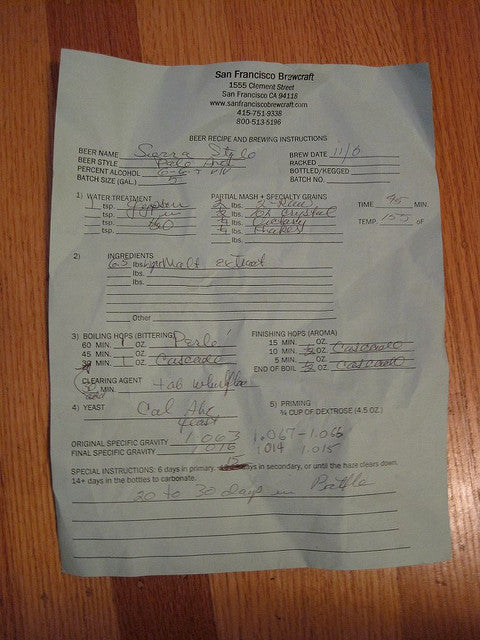 San Francisco Brewcraft
1555 Clement Street
San Francisco CA 94118
www.sanfranciscobrewcraft.com
415-751-9338
800-513-5196
BEER RECIPE AND BREWING INSTRUCTIONS
BEER NAME Sierra Style BREW DATE 11/6
BEER STYLE Pale Ale RACKED
PERCENT ALCOHOL BOTTLED/KEGGED
BATCH SIZE (GAL.) 5 BATCH NO.
1) WATER TREATMENT PARTIAL MASH + SPECIALTY GRAINS TIME MIN.
1 tsp. gypsum 2 lbs. 2-Row
tsp. lbs. Crystal TEMP 155 OF
tsp. lbs.
tsp. lbs. Flakes
lbs.
2) INGREDIENTS
6.5 lbs. Malt extract
lbs.
lbs.
Other
3) BOILING HOPS (BITTERING) FINISHING HOPS (AROMA)
60 MIN. 1 OZ. Perle 15 MIN. OZ.
45 MIN. OZ. 10 MIN. ½ OZ. Cascade
30 MIN. 1 OZ. Cascade 5 MIN. OZ.
END OF BOIL ½ OZ. Cascade
CLEARING AGENT
MIN. tab whirlfloc
4) YEAST Cal Ale 5) PRIMING
yeast ¾ CUP OF DEXTROSE (4.5 OZ.)
ORIGINAL SPECIFIC GRAVITY 1.063 1.067-1.066
FINAL SPECIFIC GRAVITY 1016 1014 1.015
15
SPECIAL INSTRUCTIONS: 6 days in primary. days in secondary, or until the haze clears down.
14+ days in the bottles to carbonate.
20 to 30 days in Bottle